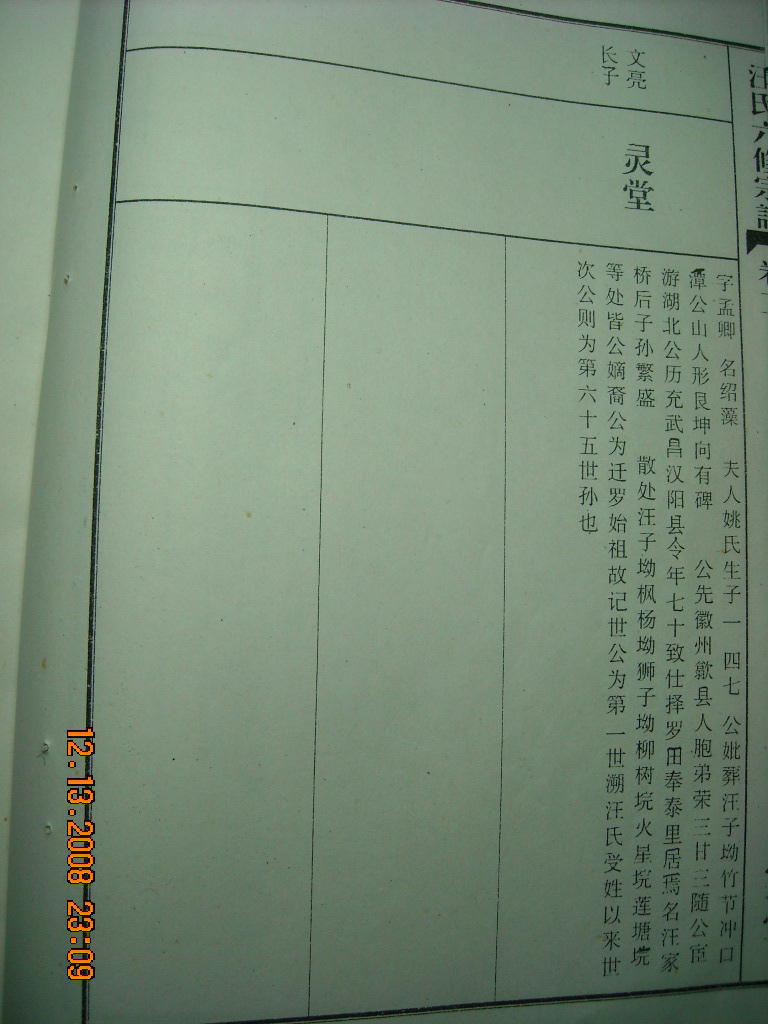 汪氏六修宗谱
卷
文亮
长子
灵堂
字孟卿 名绍藻 夫人姚氏生子一 四七 公妣葬汪子坳竹节冲口
潭公山人形艮坤向有碑 公先徽州歙县人胞弟荣三廿三随公宦
游湖北公历充武昌汉阳县令年七十致仕择罗田奉泰里居焉名汪家
桥后子孙繁盛 散处汪子坳枫杨坳狮子坳柳树垸火星垸莲塘垸
等处皆公嫡裔公为迁罗始祖故记世公为第一世溯汪氏受姓以来世
次公则为第六十五世孙也
12.13.2008 23:09